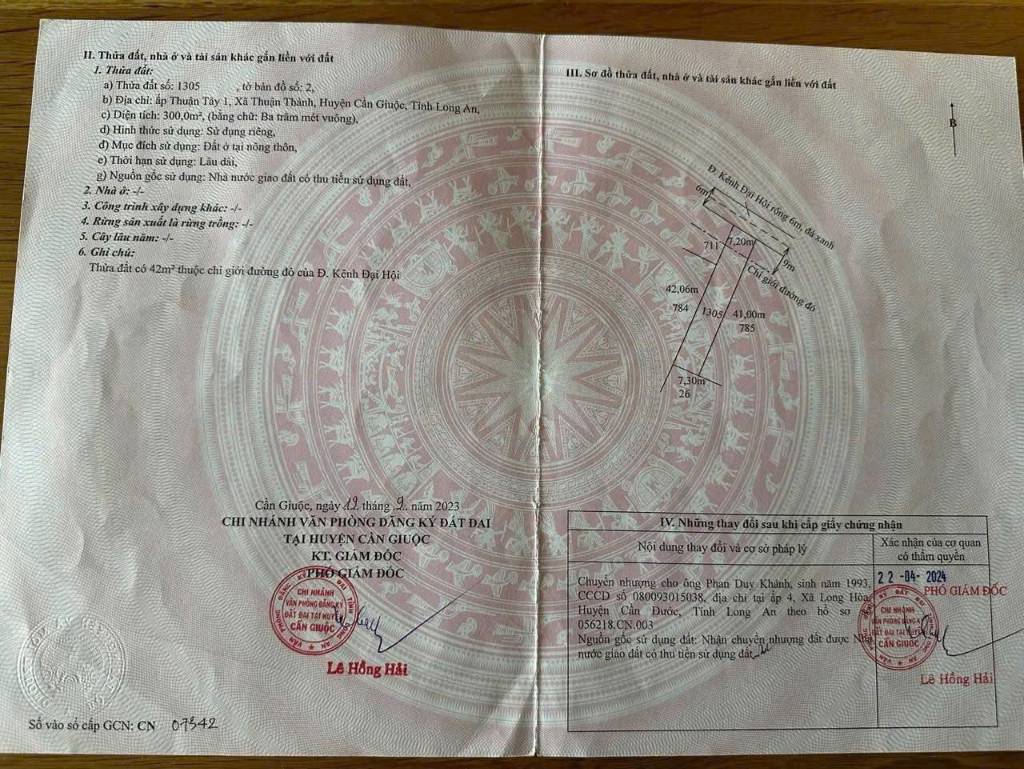 II. Thửa đất, nhà ở và tài sản khác gắn liền với đất
1. Thửa đất:
a) Thửa đất số: 1305 , tờ bản đồ số: 2,
b) Địa chỉ: ấp Thuận Tây 1, Xã Thuận Thành, Huyện Cần Giuộc, Tỉnh Long An,
c) Diện tích: 300,0m², (bằng chữ: Ba trăm mét vuông),
d) Hình thức sử dụng: Sử dụng riêng,
đ) Mục đích sử dụng: Đất ở tại nông thôn,
e) Thời hạn sử dụng: Lâu dài,
g) Nguồn gốc sử dụng: Nhà nước giao đất có thu tiền sử dụng đất,
2. Nhà ở: -/-
3. Công trình xây dựng khác: -/-
4. Rừng sản xuất là rừng trồng: -/-
5. Cây lâu năm: -/-
6. Ghi chú:
Thửa đất có 42m² thuộc chỉ giới đường đỏ của Đ. Kênh Đại Hội
Cần Giuộc, ngày 19 tháng 9 năm 2023
CHI NHÁNH VĂN PHÒNG ĐĂNG KÝ ĐẤT ĐAI
TẠI HUYỆN CẦN GIUỘC
KT. GIÁM ĐỐC
PHÓ GIÁM ĐỐC
CHI NHÁNH
VĂN PHÒNG ĐĂNG KÝ
ĐẤT ĐAI TẠI HUYỆN
CẦN GIUỘC
Lê Hồng Hải
Số vào sổ cấp GCN: CN 07342
III. Sơ đồ thửa đất, nhà ở và tài sản khác gắn liền với đất
B
Đ. Kênh Đại Hội rộng 6m, đá xanh
6m
7,20m
711
9m
Chỉ giới đường đỏ
42,06m
784
1305
41,00m
785
7,30m
26
IV. Những thay đổi sau khi cấp giấy chứng nhận
Nội dung thay đổi và cơ sở pháp lý
Xác nhận của cơ quan
có thẩm quyền
Chuyển nhượng cho ông Phan Duy Khánh, sinh năm 1993,
CCCD số 080093015038, địa chỉ tại ấp 4, Xã Long Hòa,
Huyện Cần Đước, Tỉnh Long An theo hồ sơ
056218.CN.003
Nguồn gốc sử dụng đất: Nhận chuyển nhượng đất được Nhà
nước giao đất có thu tiền sử dụng đất
22 -04- 2024
PHÓ GIÁM ĐỐC
CHI NHÁNH
VĂN PHÒNG ĐĂNG KÝ
ĐẤT ĐAI TẠI HUYỆN
CẦN GIUỘC
Lê Hồng Hải